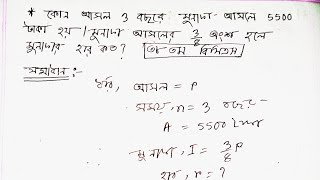 * কোন আসল 3 বছরে মুনাফা-আসলে 5500
টাকা হয়। মুনাফা আসলের 3/8 অংশ হলে
মুনাফার হার কত?
সমাধান:-
ধরি, আসল = P
সময়, n = 3 বছর
A = 5500 টাকা
∴ মুনাফা, I = 3/8 P
হার, r = ?